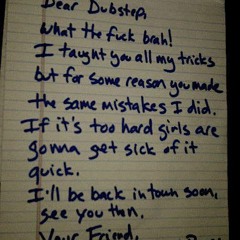 Dear Dubstep,
what the fuck brah!
I taught you all my tricks
but for some reason you made
the same mistakes I did.
If it's too hard girls are
gonna get sick of it
quick.
I'll be back in town soon,
see you then.
Your Friend,